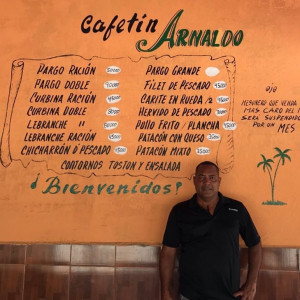 Cafetín ARNALDO
PARGO RACIÓN
PARGO DOBLE
CURBINA RACIÓN
CURBINA DOBLE
LEBRANCHE "
LEBRANCHE RACIÓN
CHICHARRÓN D' PESCADO
PARGO GRANDE
FILET DE PESCADO
CARITE EN RUEDA
HERVIDO DE PESCADO
POLLO FRITO / PLANCHA
PATACÓN CON QUESO
PATACÓN MIXTO
CONTORNOS TOSTON Y ENSALADA
¡Bienvenidos!
OJO
MESONERO QUE VENDA
MAS CARO DEL
SERA SUSPENDIDO
POR UN MES